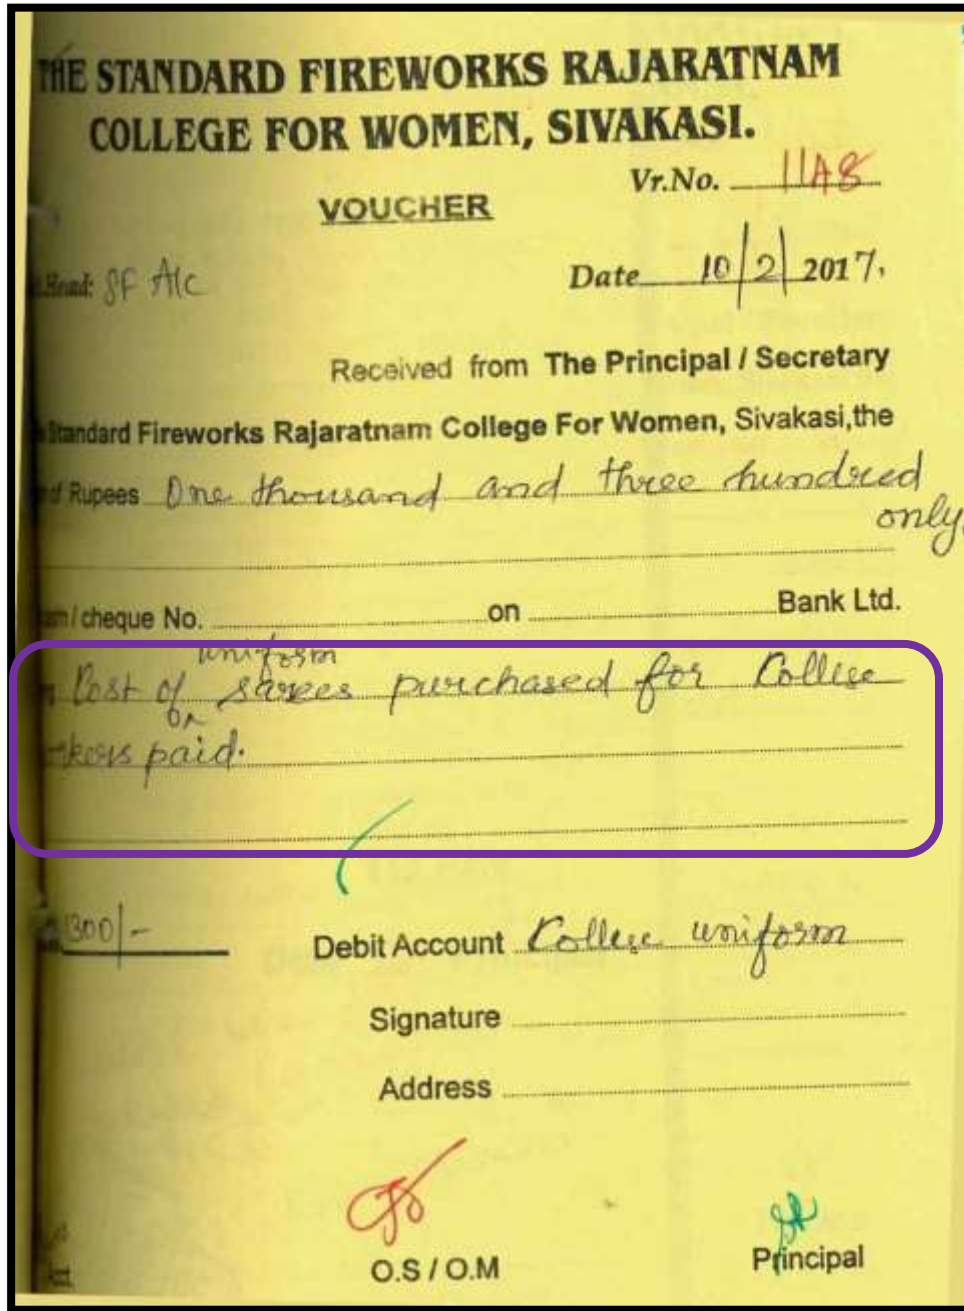 THE STANDARD FIREWORKS RAJARATNAM
COLLEGE FOR WOMEN, SIVAKASI.
Vr.No. 11A8
VOUCHER
Head: SF A/c
Date 10/2/2017.
Received from The Principal / Secretary
Standard Fireworks Rajaratnam College For Women, Sivakasi, the
of Rupees One thousand and three hundred
only.
/ cheque No. on Bank Ltd.
uniform
Cost of sarees purchased for College
paid.
1300/-
Debit Account College uniform
Signature
Address
O.S / O.M
Principal